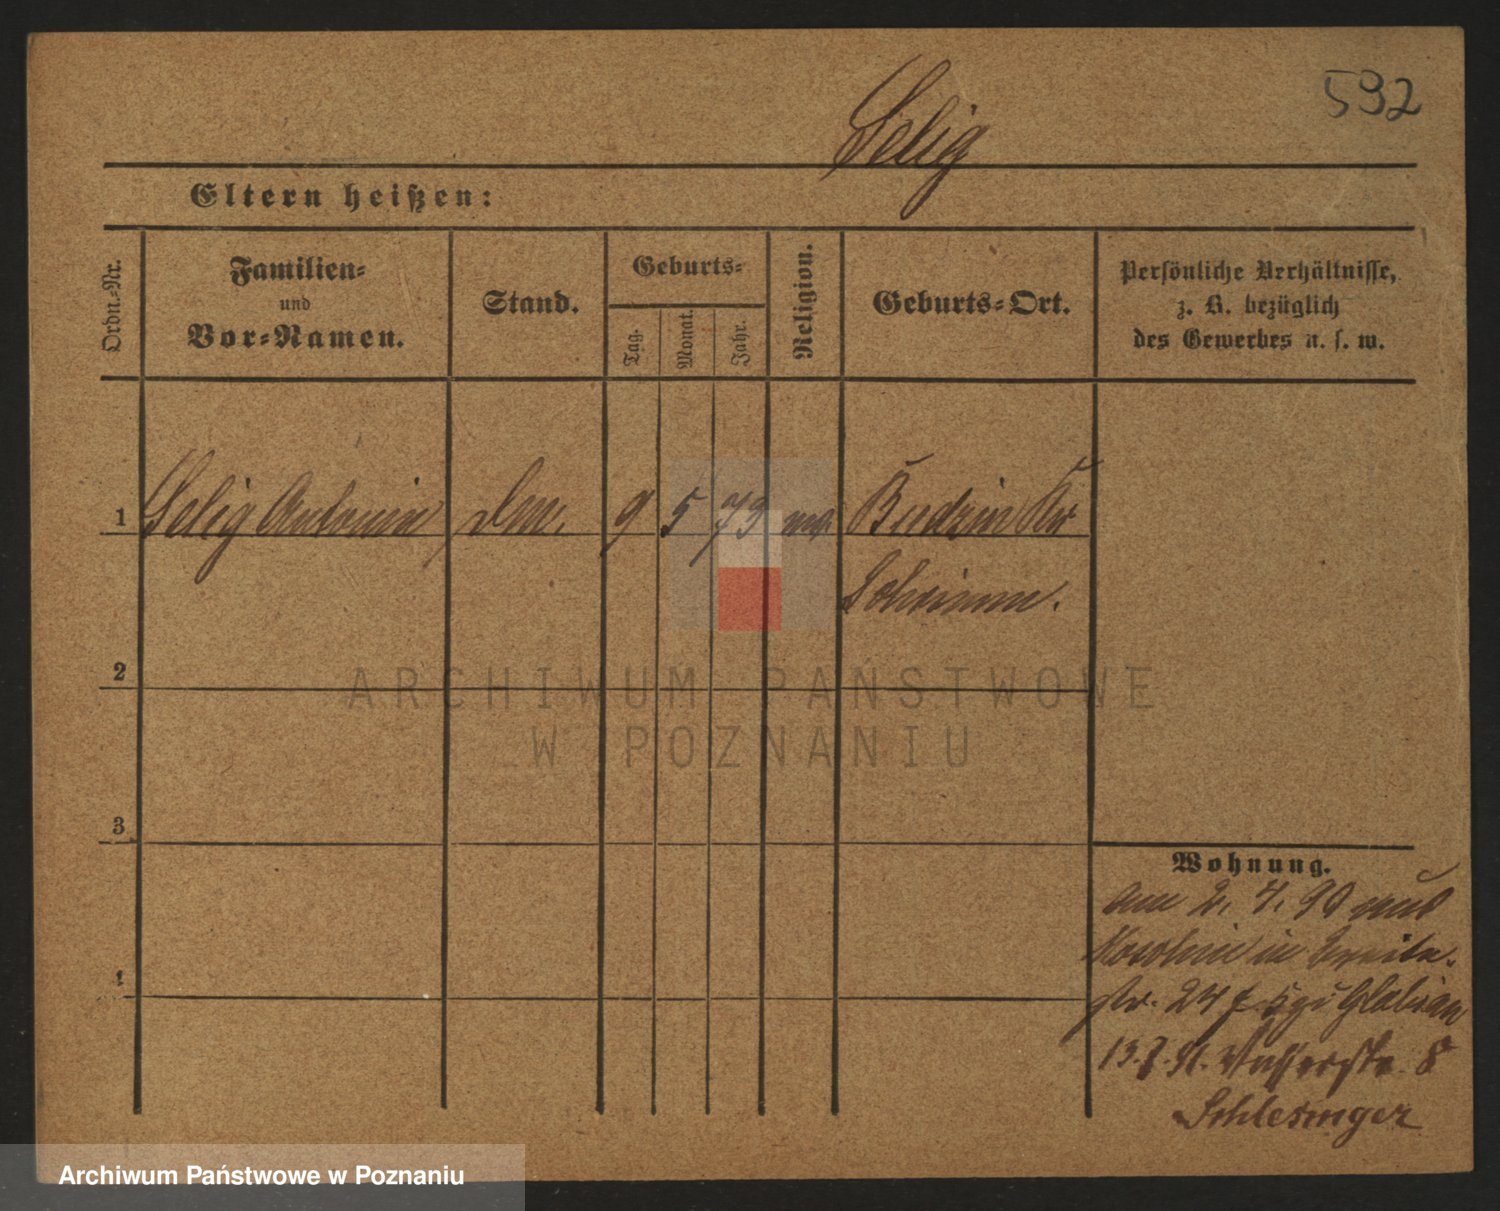 592
Selig
Eltern heißen:
Ordn.-Nr.
Familien-
und
Vor-Namen.
Stand.
Geburts-
Tag.
Monat.
Jahr.
Religion.
Geburts-Ort.
Persönliche Verhältnisse,
z. B. bezüglich
des Gewerbes u. s. w.
1 Selig Antonin 9 5 73 Budzin Kr
Schrimm.
2
3
4
Wohnung.
am 2. 4. 90 aus
in Breite-
str. 24
13. 7. 91. Wasserstr. 8
Schlesinger
ARCHIWUM PAŃSTWOWE
W POZNANIU
Archiwum Państwowe w Poznaniu